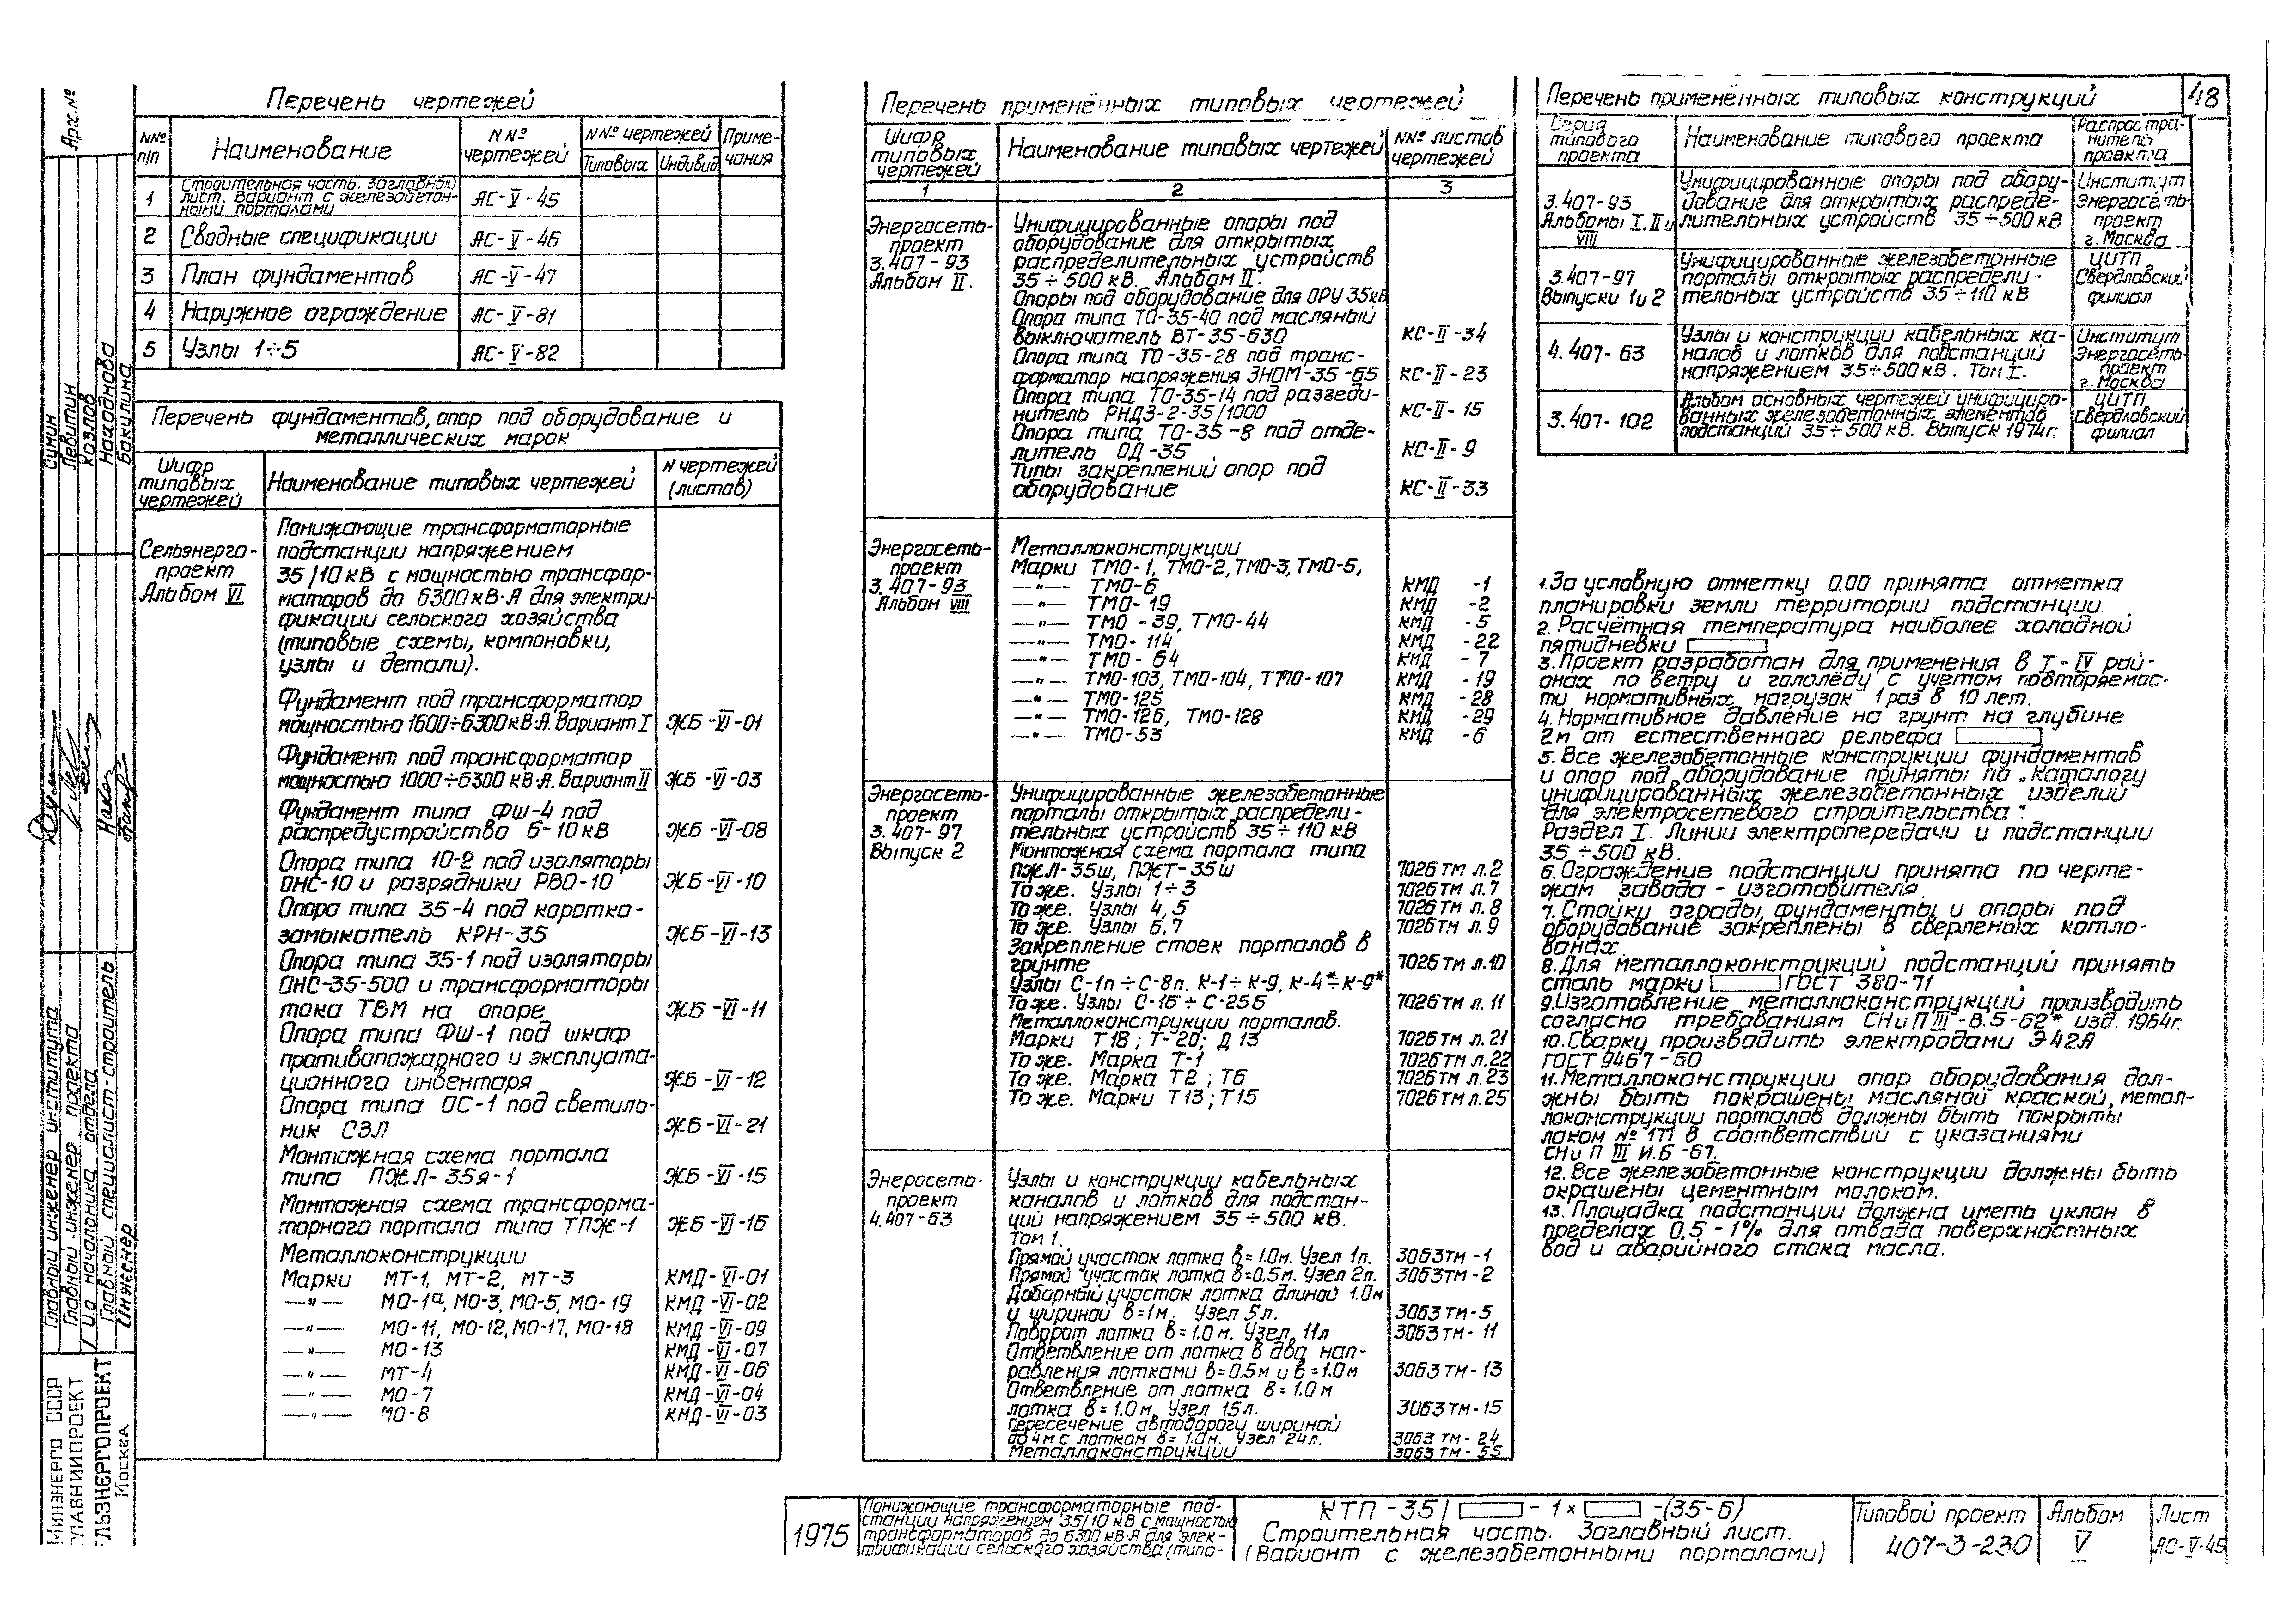 48
Перечень чертежей
NN№ п/п
Наименование
NN№ чертежей
NN№ чертежей
Типовых
Индивид
Приме-
чания
1
Строительная часть. Заглавный
лист. Вариант с железобетон-
ными порталами
АС-V-45
2 Сводные спецификации АС-V-46
3 План фундаментов АС-V-47
4 Наружное ограждение АС-V-81
5 Узлы 1÷5 АС-V-82
Перечень фундаментов, опор под оборудование и
металлических марок
Шифр
типовых
чертежей
Наименование типовых чертежей
N чертежей
(листов)
Сельэнерго-
проект
Альбом VI
Понижающие трансформаторные
подстанции напряжением
35/10 кВ с мощностью трансфор-
маторов до 6300 кВ·А для электри-
фикации сельского хозяйства
(типовые схемы, компоновки,
узлы и детали).
Фундамент под трансформатор
мощностью 1600÷6300 кВ·А. Вариант I ЖБ-VI-01
Фундамент под трансформатор
мощностью 1000÷6300 кВ·А. Вариант II ЖБ-VI-03
Фундамент типа ФШ-4 под
распредустройство 6-10 кВ ЖБ-VI-08
Опора типа 10-2 под изоляторы
ОНС-10 и разрядники РВО-10 ЖБ-VI-10
Опора типа 35-4 под коротко-
замыкатель КРН-35 ЖБ-VI-13
Опора типа 35-1 под изоляторы
ОНС-35-500 и трансформаторы
тока ТВМ на опоре ЖБ-VI-11
Опора типа ФШ-1 под шкаф
противопожарного и эксплуата-
ционного инвентаря ЖБ-VI-12
Опора типа ОС-1 под светиль-
ник СЗЛ ЖБ-VI-21
Монтажная схема портала
типа ПЖЛ-35я-1 ЖБ-VI-15
Монтажная схема трансформа-
торного портала типа ТПЖ-1 ЖБ-VI-16
Металлоконструкции
Марки МТ-1, МТ-2, МТ-3 КМД-VI-01
—"— МО-1а, МО-3, МО-5, МО-19 КМД-VI-02
—"— МО-11, МО-12, МО-17, МО-18 КМД-VI-09
—"— МО-13 КМД-VI-07
—"— МТ-4 КМД-VI-06
—"— МО-7 КМД-VI-04
—"— МО-8 КМД-VI-03
Перечень применённых типовых чертежей
Шифр
типовых
чертежей
Наименование типовых чертежей
NN№ листов
чертежей
1 2 3
Энергосеть-
проект
3.407-93
Альбом II.
Унифицированные опоры под
оборудование для открытых
распределительных устройств
35÷500 кВ. Альбом II.
Опоры под оборудование для ОРУ 35кВ
Опора типа ТО-35-40 под масляный
выключатель ВТ-35-630 КС-II-34
Опора типа ТО-35-28 под транс-
форматор напряжения ЗНОМ-35-65 КС-II-23
Опора типа ТО-35-14 под разъеди-
нитель РНДЗ-2-35/1000 КС-II-15
Опора типа ТО-35-8 под отде-
литель ОД-35 КС-II-9
Типы закреплений опор под
оборудование КС-II-33
Энергосеть-
проект
3.407-93
Альбом VIII
Металлоконструкции
Марки ТМО-1, ТМО-2, ТМО-3, ТМО-5,
—"— ТМО-6 КМД -1
—"— ТМО-19 КМД -2
—"— ТМО-39, ТМО-44 КМД -5
—"— ТМО-114 КМД -22
—"— ТМО-64 КМД -7
—"— ТМО-103, ТМО-104, ТМО-107 КМД -19
—"— ТМО-125 КМД -28
—"— ТМО-126, ТМО-128 КМД -29
—"— ТМО-53 КМД -6
Энергосеть-
проект
3.407-97
Выпуск 2
Унифицированные железобетонные
порталы открытых распредели-
тельных устройств 35÷110 кВ
Монтажная схема портала типа
ПЖЛ-35ш, ПЖТ-35ш 7026 ТМ л.2
То же. Узлы 1÷3 7026 ТМ л.7
То же. Узлы 4,5 7026 ТМ л.8
То же. Узлы 6,7 7026 ТМ л.9
Закрепление стоек порталов в
грунте 7026 ТМ л.10
Узлы С-1п÷С-8п. К-1÷К-9, К-4*÷К-9*
То же. Узлы С-16÷С-25б 7026 ТМ л.11
Металлоконструкции порталов.
Марки Т18; Т-20; Д13 7026 ТМ л.21
То же. Марка Т-1 7026 ТМ л.22
То же. Марка Т2; Т6 7026 ТМ л.23
То же. Марки Т13; Т15 7026 ТМ л.25
Энеросеть-
проект
4.407-63
Узлы и конструкции кабельных
каналов и лотков для подстан-
ций напряжением 35÷500 кВ.
Том 1.
Прямой участок лотка в=1.0м. Узел 1п. 3063 ТМ-1
Прямой участок лотка в=0.5м. Узел 2п. 3063 ТМ-2
Доборный участок лотка длиной 1.0м
и шириной в=1м. Узел 5л. 3063 ТМ-5
Поворот лотка в=1.0 м. Узел 11л 3063 ТМ-11
Ответвление от лотка в два нап-
равления лотками в=0.5м и в=1.0м 3063 ТМ-13
Ответвление от лотка в=1.0м
лотка в=1.0м. Узел 15л. 3063 ТМ-15
Пересечение автодорогу шириной
до 4м с лотком в=1.0м. Узел 24л. 3063 ТМ-24
Металлоконструкции 3063 ТМ-55
Перечень применённых типовых конструкций
Серия
типового
проекта
Наименование типового проекта
Распростра-
нитель
проекта
3.407-93
Альбомы I, II и
VIII
Унифицированные опоры под обору-
дование для открытых распреде-
лительных устройств 35÷500 кВ
Институт
Энергосеть-
проект
г. Москва
3.407-97
Выпуски 1и2
Унифицированные железобетонные
порталы открытых распредели-
тельных устройств 35÷110 кВ
ЦИТП
Свердловский
филиал
4.407-63
Узлы и конструкции кабельных ка-
налов и лотков для подстанций
напряжением 35÷500кВ. Том I.
Институт
Энергосеть-
проект
г. Москва
3.407-102
Альбом основных чертежей унифициро-
ванных железобетонных элементов
подстанций 35÷500 кВ. Выпуск 1974г.
ЦИТП
Свердловский
филиал
1. За условную отметку 0,00 принята отметка
планировки земли территории подстанции.
2. Расчётная температура наиболее холодной
пятидневки
3. Проект разработан для применения в I-IV рай-
онах по ветру и гололёду с учетом повторяемос-
ти нормативных нагрузок 1 раз в 10 лет.
4. Нормативное давление на грунт на глубине
2м от естественного рельефа
5. Все железобетонные конструкции фундаментов
и опор под оборудование приняты по „Каталогу
унифицированных железобетонных изделий
для электросетевого строительства":
Раздел I. Линии электропередачи и подстанции
35÷500 кВ.
6. Ограждение подстанции принято по черте-
жам завода-изготовителя.
7. Стойки ограды, фундаменты и опоры под
оборудование закреплены в сверленых котло-
ванах.
8. Для металлоконструкций подстанций принять
сталь марки ГОСТ 380-71
9. Изготовление металлоконструкций производить
согласно требованиям СНиП III-В.5-62* изд. 1964г.
10. Сварку производить электродами Э42А
ГОСТ 9467-60
11. Металлоконструкции опор оборудования дол-
жны быть покрашены масляной краской, метал-
локонструкции порталов должны быть покрыты
лаком № 177 в соответствий с указаниями
СНиП III И.6-67.
12. Все железобетонные конструкции должны быть
окрашены цементным молоком.
13. Площадка подстанции должна иметь уклон в
пределах 0,5-1% для отвода поверхностных
вод и аварийного стока масла.
Арх.№
Сумин
Левитин
Козлов
Находнова
Бакулина
Главный инженер института
Главный инженер проекта
И.о начальника отдела
Главный специалист-строитель
Инженер
Минэнерго СССР
ГЛАВНИИПРОЕКТ
ЛЬЭНЕРГОПРОЕКТ
Москва
1975
Понижающие трансформаторные под-
станции напряжением 35/10 кВ с мощностью
трансформаторов до 6300 кВ·А для элек-
трификации сельского хозяйства (типо-
КТП-35/ -1× -(35-6)
Строительная часть. Заглавный лист.
(Вариант с железобетонными порталами)
Типовой проект
407-3-230
Альбом
V
Лист
АС-V-45